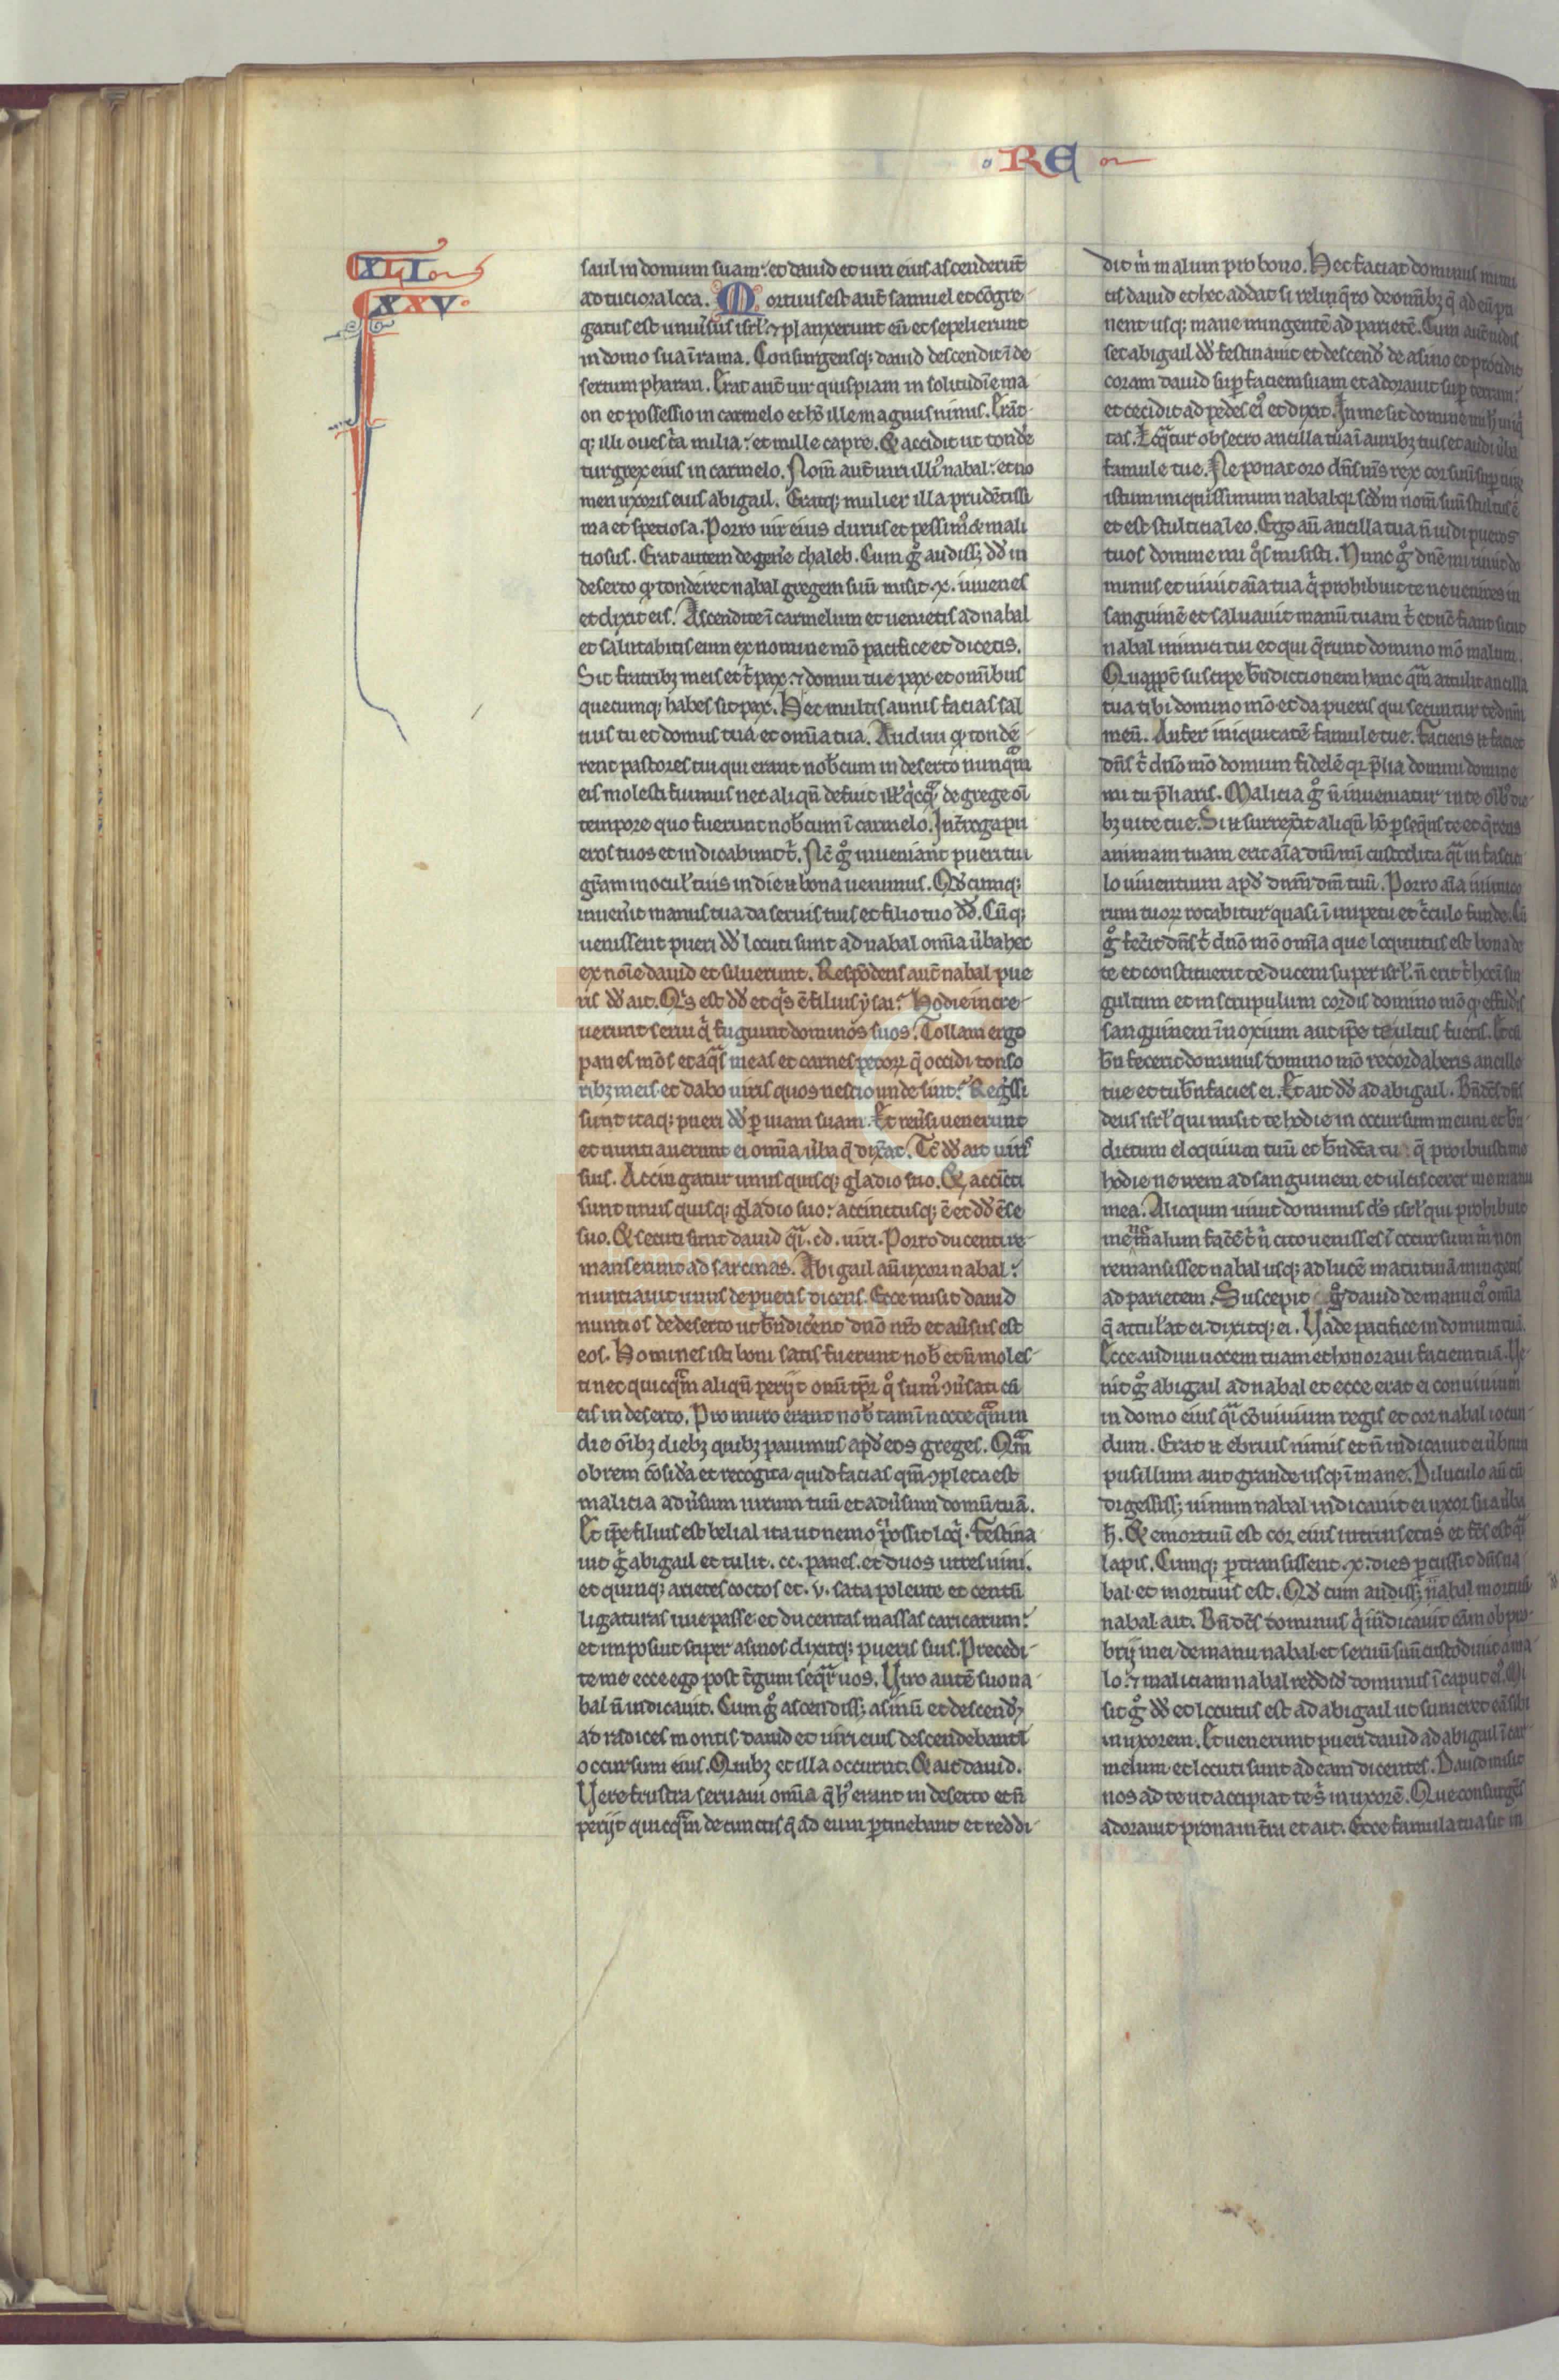 RE
XLI
XXV
saul in domum suam. et dauid et uiri eius ascenderūt
ad tuciora loca. Mortuus est aut̄ samuel et cōgre
gatus est uniu̓sus isrl̓. ⁊ planxerunt eū et sepelierunt
in domo sua ī rama. Consurgensq; dauid descendit ī de
sertum pharan. Erat aut̄ uir quispiam in solitudīe ma
on et possessio in carmelo et hō ille magnus nimis. Erāt
q; illi oues t̓a milia. et mille capre. Et accidit ut tonde
tur grex eius in carmelo. Nom̄ aut̄ uiri illi᷒ nabal. et no
men uxoris eius abigail. Eratq; mulier illa prudētissi
ma et speciosa. Porro uir eius durus et pessim᷒ & mali
tiosus. Erat autem de gen̓e chaleb. Cum gͦ audiss; dd̄ in
deserto ꝙ tonderet nabal gregem suū misit .x. iuuenes
et dixit eis. Ascendite ī carmelum et uenietis ad nabal
et salutabitis eum ex nomine mō pacifice et dicetis.
Sit fratribꝫ meis et t̓ pax. ⁊ domui tue pax et omībus
quecunq; habes sit pax. Hec multis annis facias sal
uus tu et domus tua et omīa tua. Audiui ꝙ tonde
rent pastores tui qui erant nob̄cum in deserto nunqᵃm
eis molesti fuimus nec aliqn̄ defuit ill̓ qⁱcqᵃ de grege oī
tempore quo fuerunt nob̄cum ī carmelo. Int̓roga pu
eros tuos et indicabunt t̓. Nc̄ gͦ inueniant pueri tui
gr̄am in ocul̓ tuis in die .n. bona uenimus. Qd̄cumq;
inuen̓it manus tua da seruis tuis et filio tuo dd̄. Cūq;
uenissent pueri dd̄ locuti sunt ad nabal omīa u̓ba hec
ex noīe dauid et siluerunt. Respōdens aut̄ nabal pue
ris dd̄ ait. Qⁱs est dd̄ et qⁱs ē filius ysai? Hodie incre
uerunt serui qⁱ fugiunt dominos suos. Tollam ergo
panes mōs et aqᵃs meas et carnes pecorꝝ q̄ occidi tonso
ribꝫ meis. et dabo uiris quos nescio unde sint? Reg̓ssi
sunt itaq; pueri dd̄ ꝑ uiam suam. Et reu̓si uenerunt
et nuntiauerunt ei omīa u̓ba q̄ dix̓at. Tc̄ dd̄ ait uiris
suis. Accingatur unus quisq; gladio suo. Et accīcti
sunt unus quisq; gladio suo. accinctusq; ē et dd̄ ēse
suo. Et secuti sunt dauid qᵃi .cd. uiri. Porro ducenti re
manserunt ad sarcinas. Abigail aū uxori nabal.
nuntiauit unus de pueris dicens. Ecce misit dauid
nuntios de deserto ut bn̄dic̓ent dnō nrō et au̓sus est
eos. Homines isti boni satis fuerunt nob̄ et n̄ moles
ti nec quicqᵃm aliqn̄ perijt omī tp̄r qͦ sum᷒ ꝯu̓sati cū
eis in deserto. Pro muro erant nob̄ tam ī nocte qᵃm in
die oībꝫ diebꝫ quibꝫ pauimus apd̄ eos greges. Qᵃm
obrem cōsid̓a et recogita quid facias qm̄ ꝯpleta est
malicia adu̓sum uirum tuū et adu̓sum domū tuā.
Et ip̄e filius est belial ita ut nemo ᵉⁱ possit loqⁱ. Festina
uit gͦ abigail et tulit .cc. panes. et duos utres uini.
et quinq; arietes coctos et .v. sata polente et centū
ligaturas uue passe et ducentas massas caricarum.
et imposuit super asinos dixitq; pueris suis. Precedi
te me ecce ego post t̓gum seqᵃr uos. Viro autē suo na
bal n̄ indicauit. Cum gͦ ascendiss; asinū et descend̓ꝫ
ad radices montis dauid et uiri eius descendebant ī
occursum eius. Quibꝫ et illa occurrit. Et ait dauid.
Vere frustra seruaui omīa q̄ h᷒ erant in deserto et n̄
perijt quicqᵃm de cunctis q̄ ad eum ꝑtinebant et reddi
dit m̓ malum pro bono. Hec faciat dominus inimi
cis dauid et hec addat si relinqͦ de omībꝫ q̄ ad eū ꝑti
nent usq; mane mingentē ad parietē. Cum aut̄ uidis
set abigail dd̄ festinauit et descend̓ de asino et procidit
coram dauid suꝑ faciem suam et adorauit suꝑ terram.
et cecidit ad pedes ei᷒ et dixit. In me sit domine mi h̄ iniqⁱ
tas. Loqᵃtur obsecro ancilla tua ī auribꝫ tuis et audi u̓ba
famule tue. Ne ponat oro dn̄s mīs rex cor suū suꝑ uiꝝ
istum iniquissimum nabal qꝛ scd̄m nom̄ suū stultus ē
et est stulticia ī eo. Ego aū ancilla tua n̄ uidi pueros
tuos domine mi qͦs misisti. Nunc gͦ dnē mi uiuit do
minus et uiuit aīa tua qⁱ prohibuit te ne uenires in
sanguinē et saluauit manū tuam t̓ et nc̄ fiant sicut
nabal inimici tui et qui q̄runt domino mō malum.
Quapp̓t suscipe bn̄dictionem hanc qᵃm attulit ancilla
tua tibi domino mō et da pueris qui secuntur te dnm̄
meū. Aufer iniquitatē famule tue. Faciens .n. faciet
dn̄s t̓ dnō mō domum fidelē qꝛ p̄lia domini domine
mi tu p̄liaris. Malicia gͦ n̄ inueniatur in te oībꝫ die
bꝫ uite tue. Si .n. surrex̓it aliqn̄ hō ꝑseqn̄s te et q̄rens
animam tuam erit aīa dnī mī custodita qᵃi in fascic
lo uiuentium apd̄ dnm̄ dm̄ tuū. Porro aīa inimico
rum tuoꝝ rotabitur quasi ī impetu et c̓culo funde. Cū
gͦ fec̓it dn̄s t̓ dnō mō omīa que loquutus est bona de
te et constituerit te ducem super isrl̓. n̄ erit t̓ hoc ī sin
gultum et in scrupulum cordis domino mō ꝙ effudis
sanguinem īnoxium aut ip̄e te ultus fueris. Et cū
bn̄ fecerit dominus domino mō recordaberis ancille
tue et tu bn̄facies ei. Et ait dd̄ ad abigail. Bn̄dc̄s dn̄s
deus isrl̓ qui misit te hodie in occursum meum et bn̄
dictum eloquium tuū et bn̄dc̄a tu. q̄ proibuisti me
hodie ne irem ad sanguinem et ulciscerer me manu
mea. Alioqum uiuit dominus ds̄ isrl̓ qui prohibuit
me ne malum fac̓ē t̓ n̄ cito uenisses ī occursum m̓ non
remansisset nabal usq; ad lucē matutinā mingens
ad parietem. Suscepit gͦ dauid de manu ei᷒ omīa
q̄ attul̓at ei dixitq; ei. Vade pacifice in domum tuā.
Ecce audiui uocem tuam et honoraui faciem tuā. Ve
nit gͦ abigail ad nabal et ecce erat ei conuiuium
in domo eius qᵃi cōuiuium regis et cor nabal iocun
dum. Erat .n. ebrius nimis et n̄ indicauit ei u̓bum
pusillum aut grande usq; ī mane. Diluculo aū cū
digessiss; uinum nabal indicauit ei uxor sua u̓ba
h̄. Et emortuū est cor eius intrinsecus et fc̄s est qᵃi
lapis. Cumq; ꝑtransissent .x. dies ꝑcussit dn̄s na
bal et mortuus est. Qd̄ cum audiss; dd̄ mortuū
nabal ait. Bn̄dc̄s dominus qⁱ iudicauit cām obpro
brij mei de manu nabal et seruū suū custodiuit a ma
lo. ⁊ maliciam nabal reddid̓ dominus ī caput ei᷒. Mi
sit gͦ dd̄ et locutus est ad abigail ut sumeret eā sibi
in uxorem. Et uenerunt pueri dauid ad abigail ī car
melum et locuti sunt ad eam dicentes. Dauid misit
nos ad te ut accipiat te s̓ in uxorē. Que consurgēs
adorauit prona in t̓ra et ait. Ecce famula tua sit in
Fundación
Lázaro Galdiano